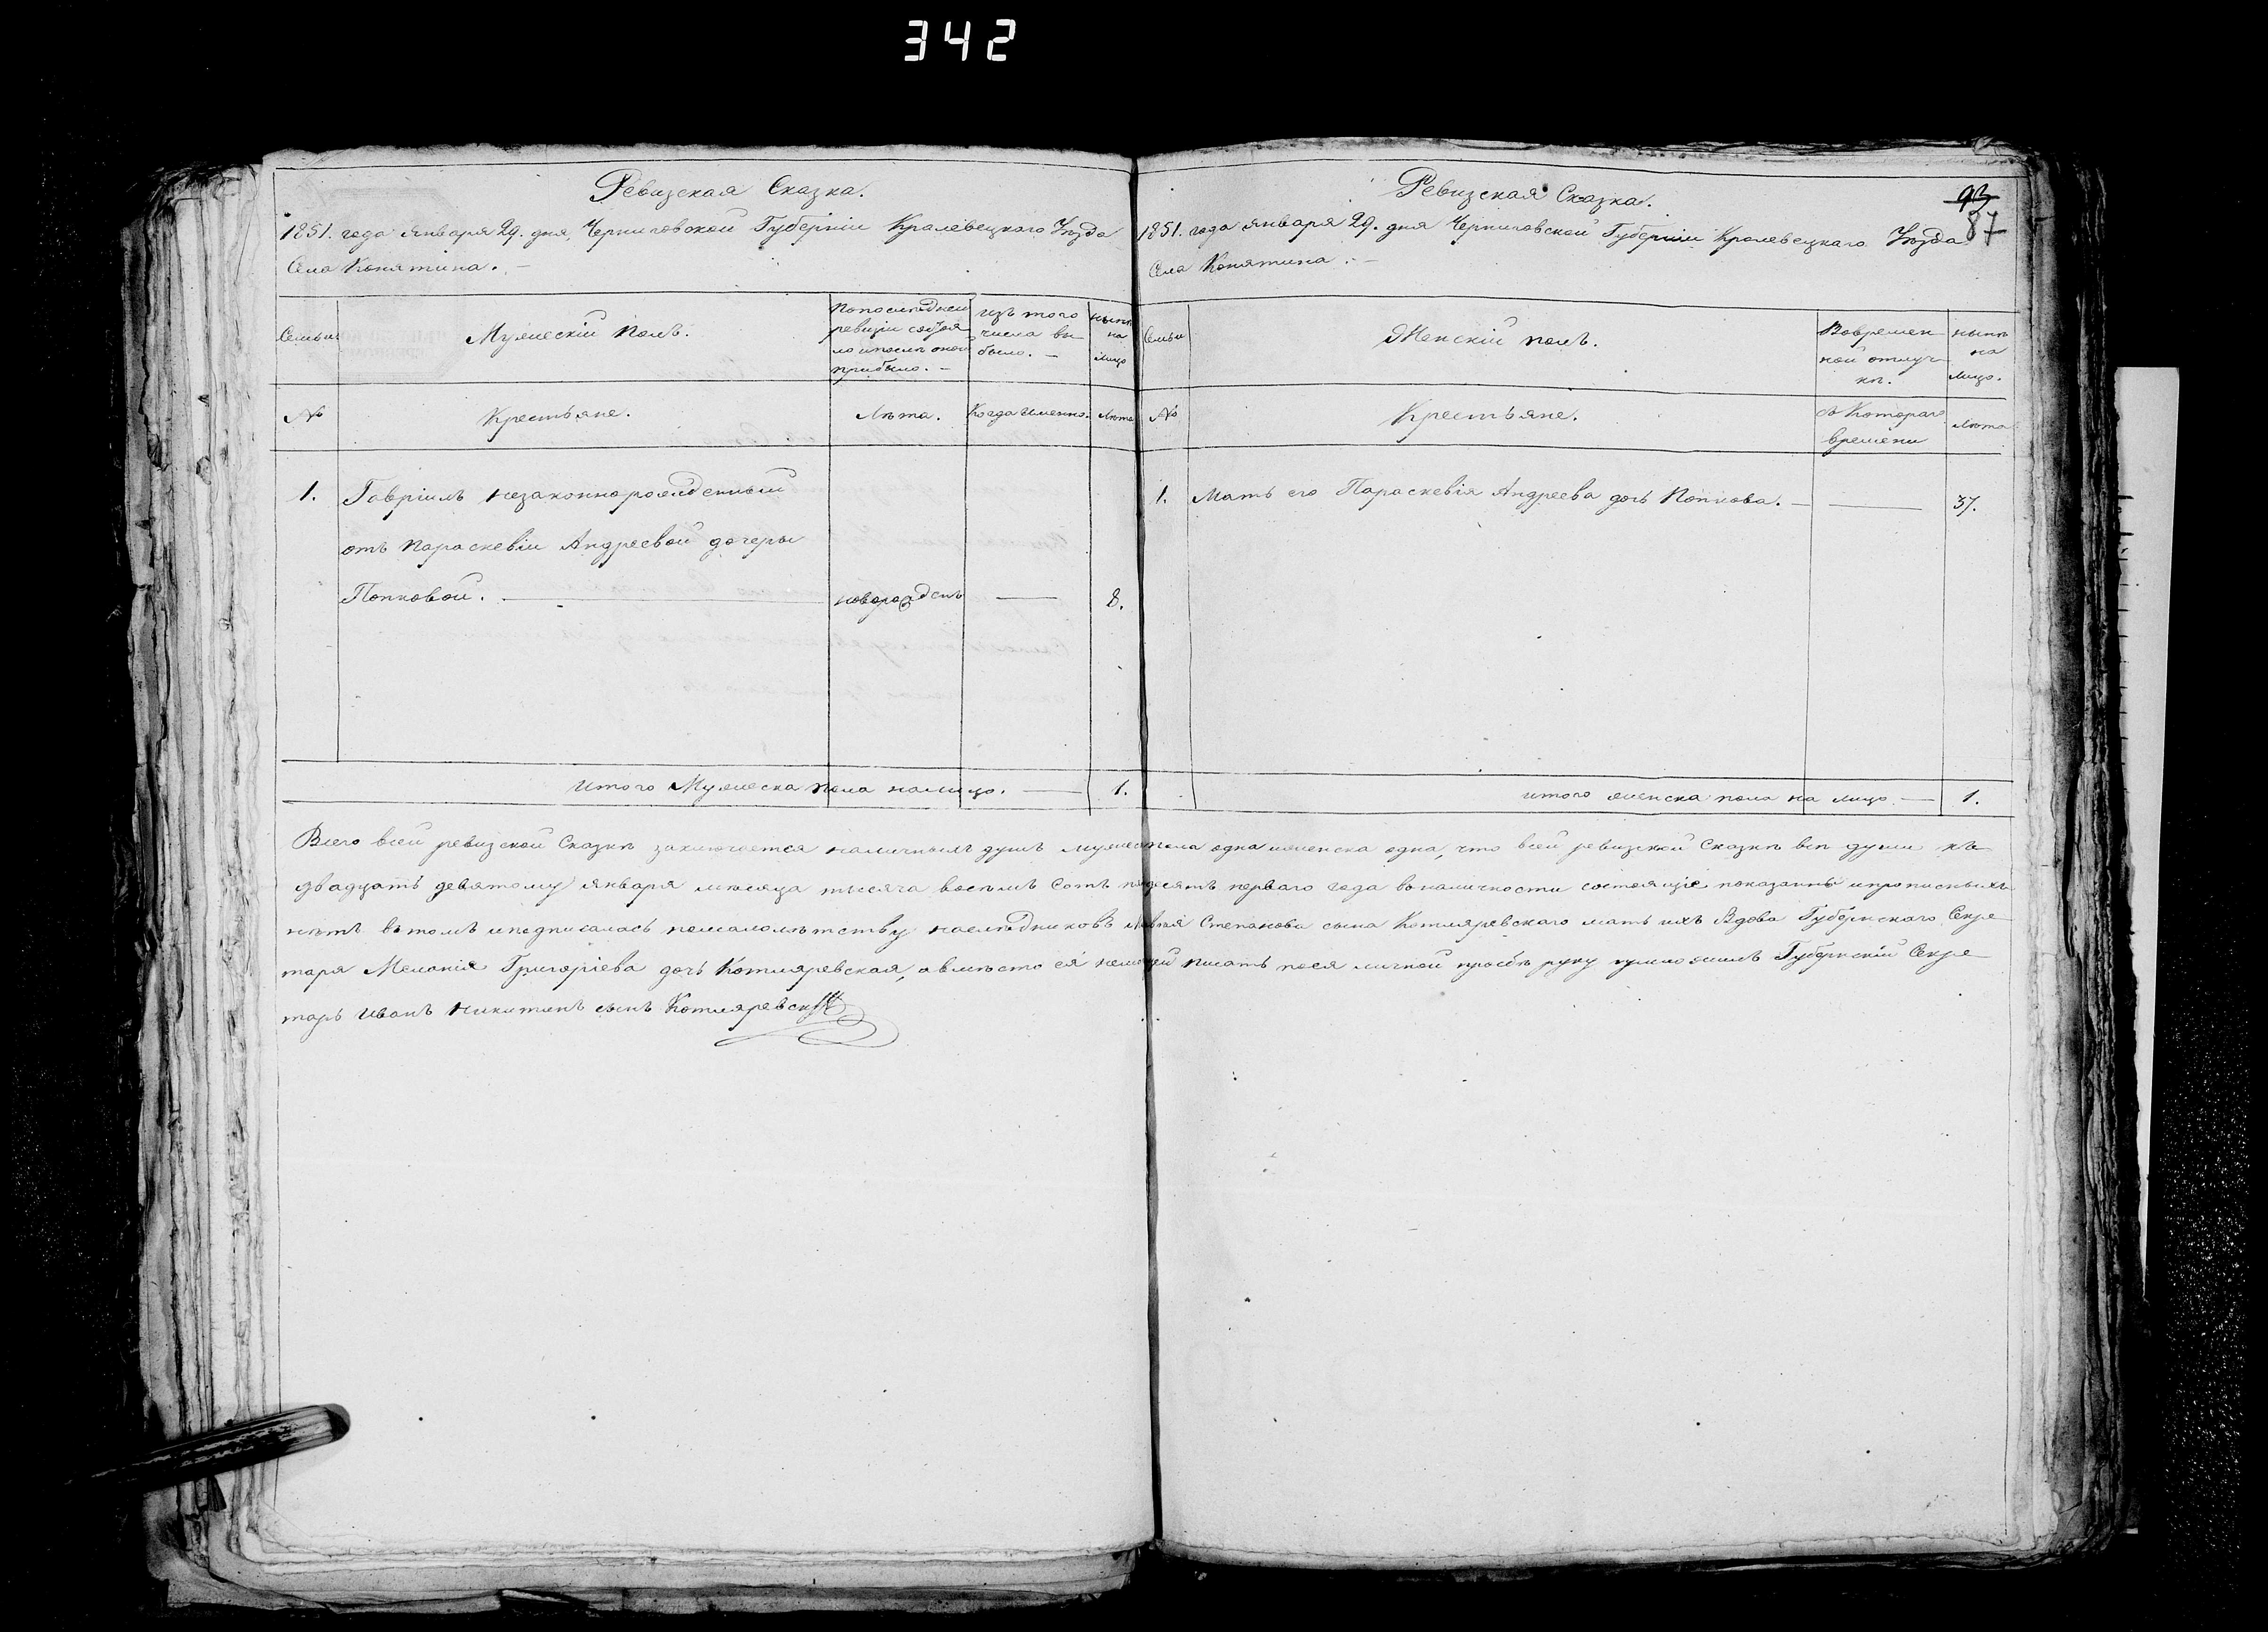 342
Ревизская Сказка.
1851. года Января 29. дня, Черниговской Губерніи Кролевецкаго Уѣзда
Села Конятина. —
Семьи
Мужескій полъ.
По последней
ревизіи состоя
ло и послѣ оной
прибыло. —
изъ того
числа вы
было. —
нынѣ
на
лицо
№
Крестьяне.
Лѣта.
Когда именно.
Лѣта
1. Гавріилъ незаконнорожденный
отъ Параскевіи Андреевой дочеры
Попковой. —
новорожденъ — 8.
Итого Мужеска пола налицо. — 1.
Ревизская Сказка.
93
87
1851. года января 29. дня Черниговской Губерніи Кролевецкаго Уѣзда
Села Конятина. —
Семьи
Женскій полъ.
Вовремен
ной отлуч
кѣ.
нынѣ
на
лицо.
№
Крестьяне.
съ Котораго
времени
Лѣта
1. Мать его Параскевія Андреева дочь Попкова. — — 37.
итого женска пола на лицо — 1.
Всего всей ревизской Сказкѣ заключается наличныхъ душъ мужеска пола одна иженска одна, что всей ревизской Сказкѣ всѣ души къ
двадцать девятому января мѣсяца тысяча восемь сотъ пядесятъ перваго года вналичности состоящіе показанны ипрописныхъ
нѣтъ втомъ иподписалась помалолѣтству наслѣдниковъ Степанова сына Котляревскаго мать ихъ Вдова Губернскаго Секре
таря Меланія Григоріева дочь Котляревская, авмѣсто ея неумѣющей писать поея личной прозбѣ руку приложилъ Губернскій Секре
тарь Иванъ Никитинъ сынъ Котляревскій